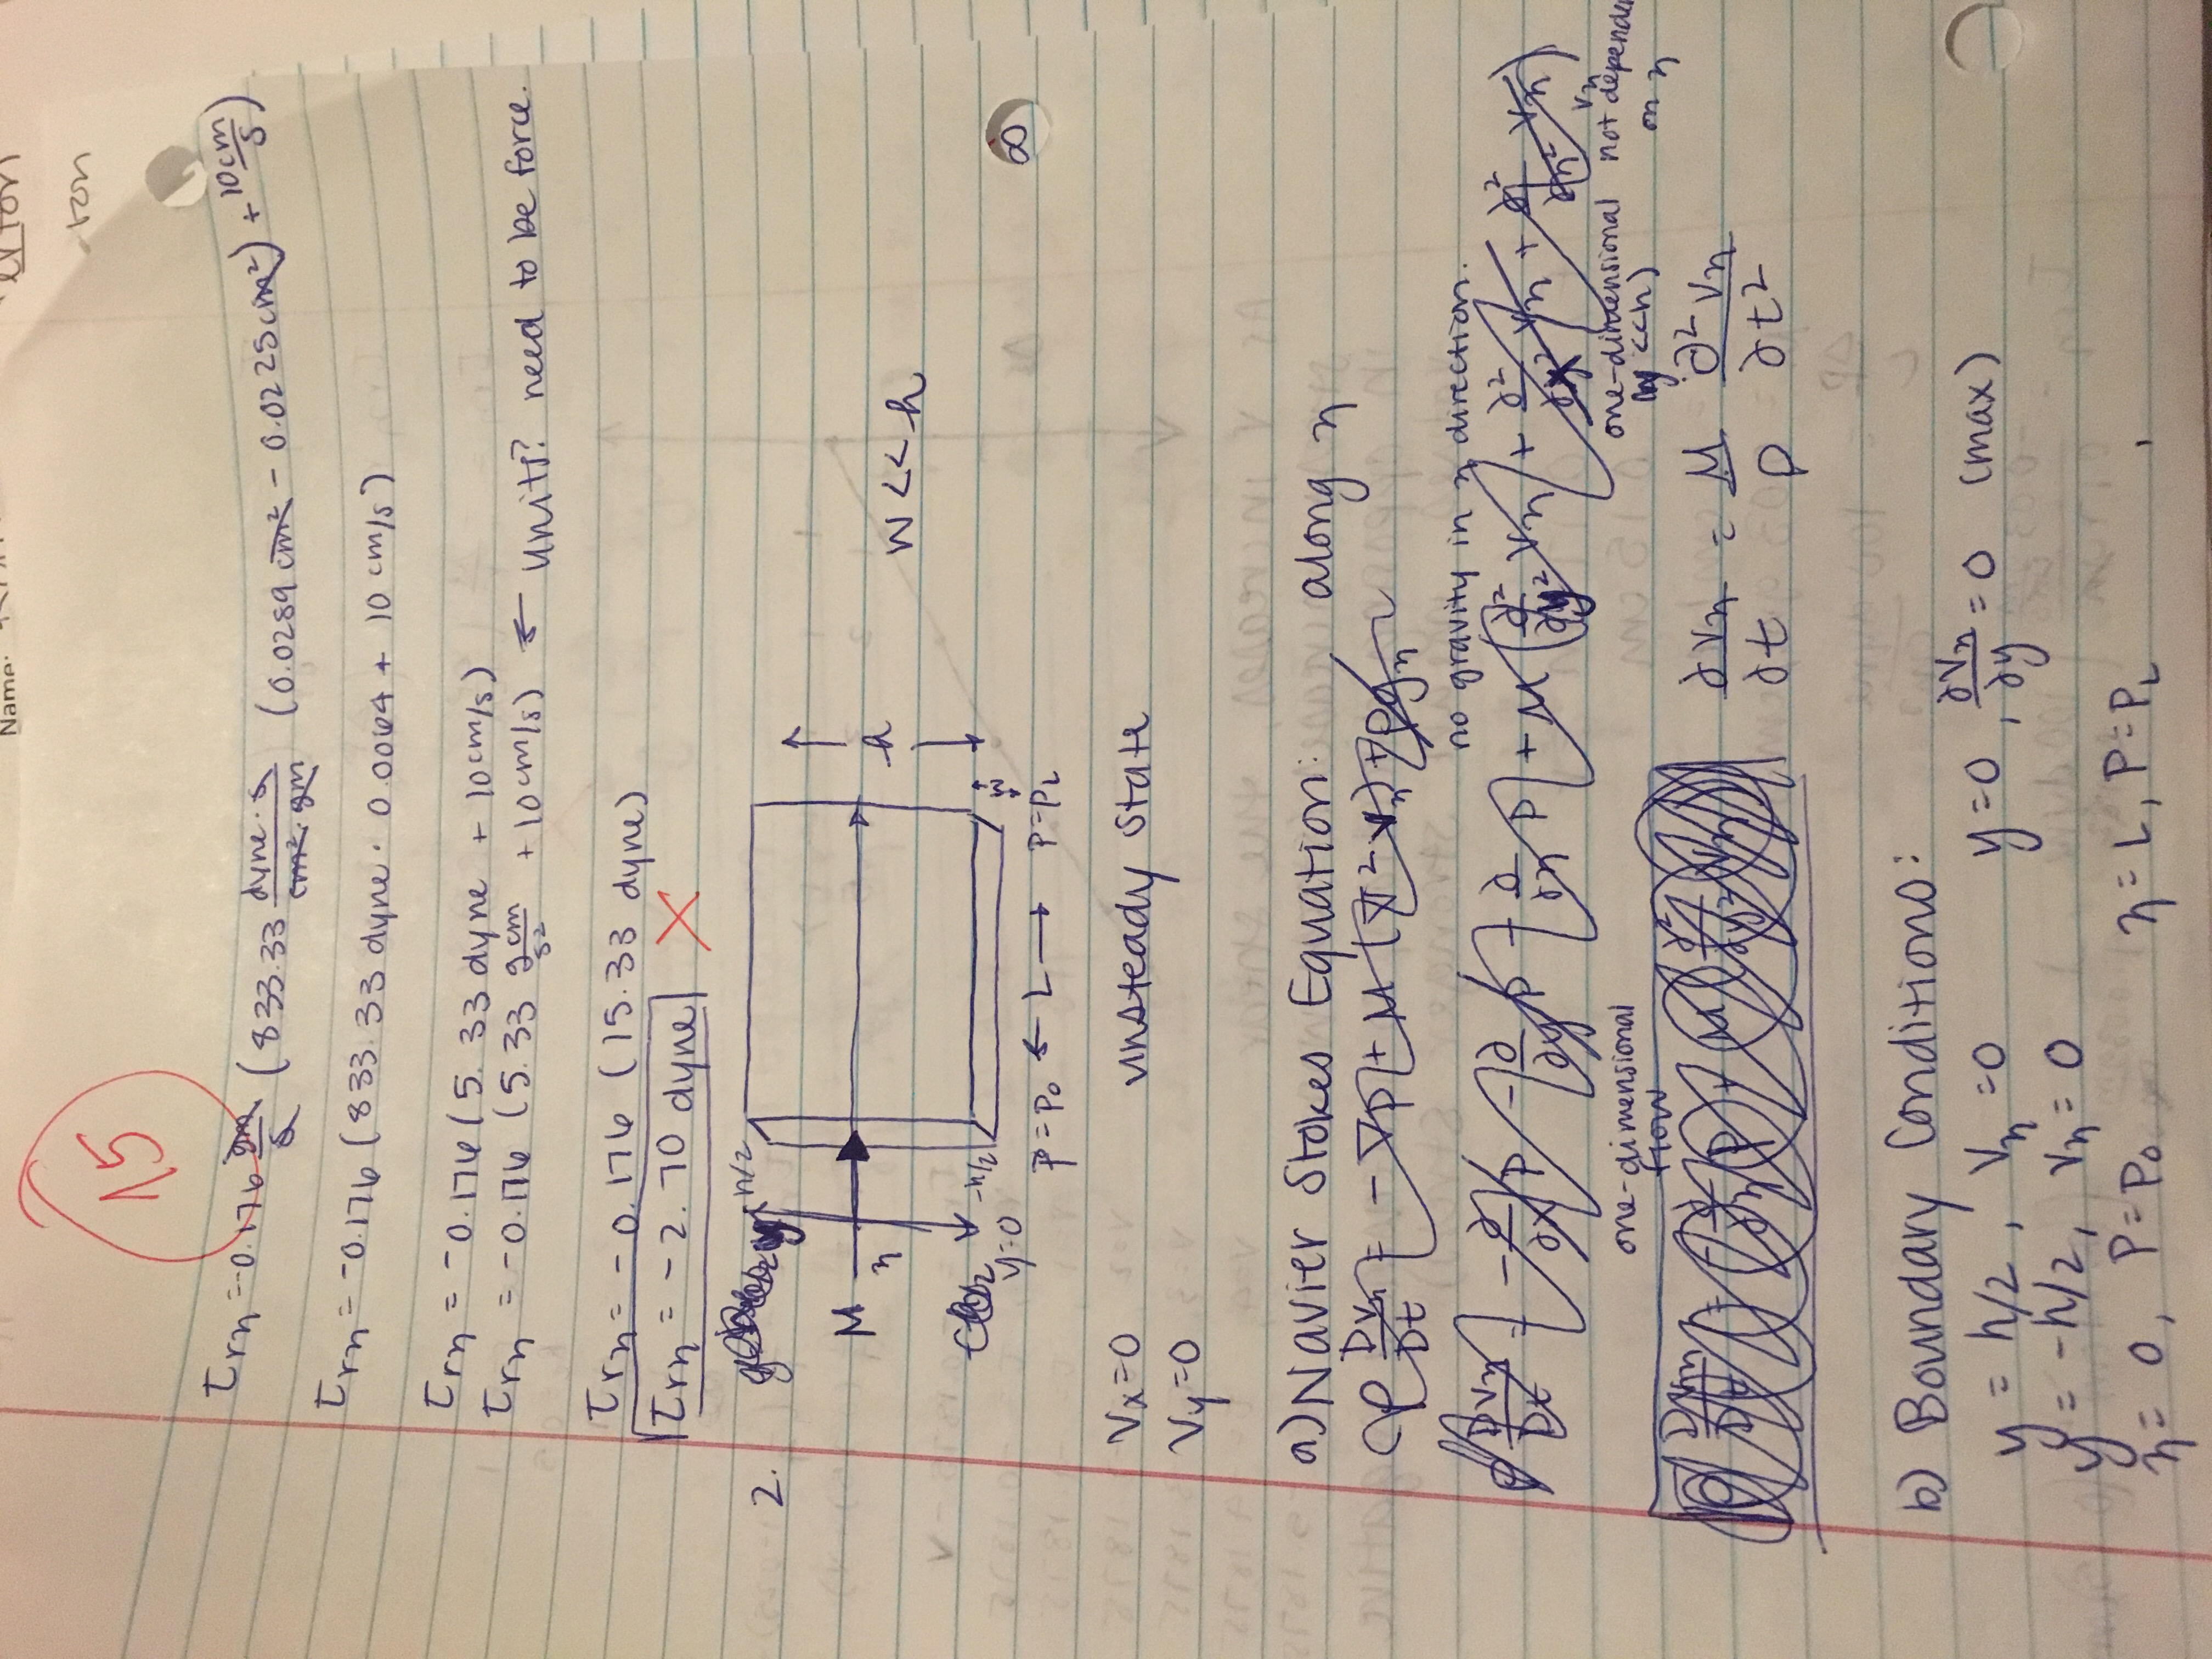 Name:
erton
ton
15
τrz = -0.176 gm/s (833.33 dyne·s/cm²·gm (0.0289 cm² - 0.0225cm²) + 10cm/s)
τrz = -0.176 (833.33 dyne · 0.0064 + 10 cm/s)
τrz = -0.176 (5.33 dyne + 10cm/s)
τrz = -0.176 (5.33 g cm/s² + 10cm/s) ← units? need to be force.
τrz = -0.176 (15.33 dyne)
τrz = -2.70 dyne X
2.
y h/2
M z h w<<h
-h/2 w
y=0
P=P₀ ← L → P=P_L
∞
Vx=0 unsteady state
Vy=0
a) Navier Stokes Equation: along z
ρ Dvz/Dt = -∇P + μ (∇² vz) + ρgz
no gravity in z direction.
ρ Dvz/Dt = -∂/∂x P - ∂/∂y P - ∂/∂z P + μ (∂²/∂y² vz + ∂²/∂x² vz + ∂²/∂z² vz)
one-dimensional flow one-dimensional <<h) vz not depende on z
∂vz/∂t = μ/ρ ∂²vz/∂t²
b) Boundary Conditions:
y = h/2, vz = 0 y=0, ∂vz/∂y = 0 (max)
y = -h/2, vz = 0
z = 0, P=P₀ z = L, P=P_L